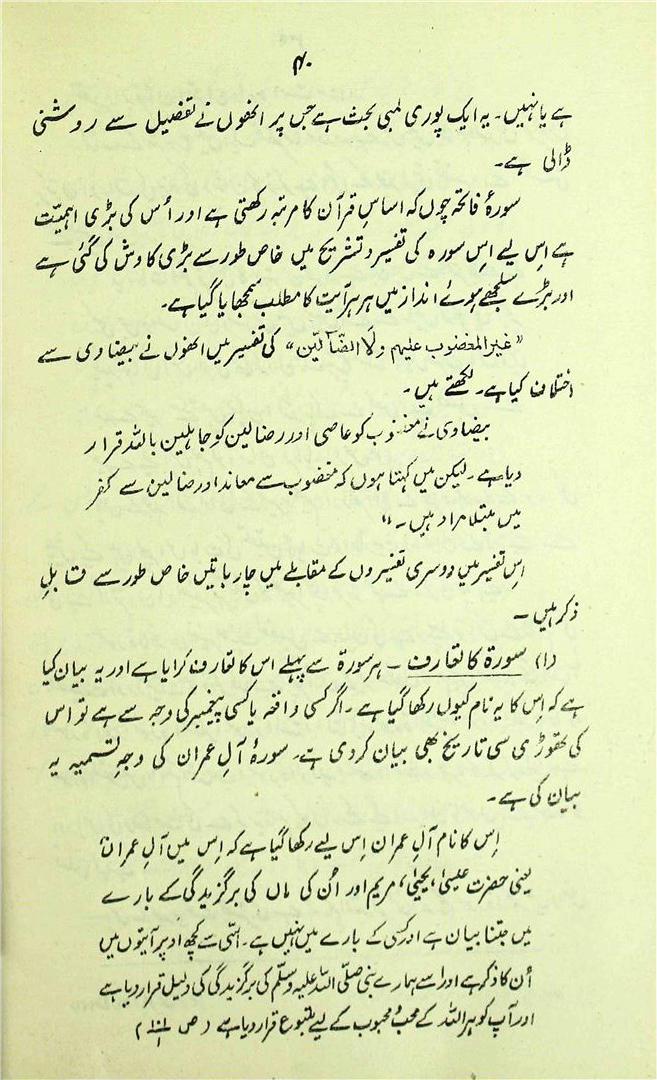 ۴۰
ہے یا نہیں۔ یہ ایک پوری لمبی بحث ہے جس پر انھوں نے تفصیل سے روشنی
ڈالی ہے۔
سورۂ فاتحہ چوں کہ اساسِ قرآن کا مرتبہ رکھتی ہے اور اُس کی بڑی اہمیّت
ہے اِس لیے اِس سورہ کی تفسیر و تشریح میں خاص طور سے بڑی کاوش کی گئی ہے
اور بڑے سلجھے ہوئے انداز میں ہر ہر آیت کا مطلب سمجھایا گیا ہے۔
”غیر المغضوب علیہم ولَا الضّآلّین“ کی تفسیر میں انھوں نے بیضاوی سے
اختلاف کیا ہے۔ لکھتے ہیں۔
بیضاوی نے مغضوب کو عاصی اور ضالین کو جاہلین باللہ قرار
دیا ہے۔ لیکن میں کہتا ہوں کہ مغضوب سے معاند اور ضالین سے کفر
میں مبتلا مراد ہیں۔“
اِس تفسیر میں دوسری تفسیروں کے مقابلے میں چار باتیں خاص طور سے قابلِ
ذکر ہیں۔
(۱) سورۃ کا تعارف۔ ہر سورۃ سے پہلے اس کا تعارف کرایا ہے اور یہ بیان کیا
ہے کہ اِس کا یہ نام کیوں رکھا گیا ہے۔ اگر کسی واقعہ یا کسی پیغمبر کی وجہ سے ہے تو اس
کی تھوڑی سی تاریخ بھی بیان کر دی ہے۔ سورۂ آلِ عمران کی وجہِ تسمیہ یہ
بیان کی ہے۔
اِس کا نام آلِ عمران اِس لیے رکھا گیا ہے کہ اِس میں آلِ عمران
یعنی حضرت عیسیٰ، یحییٰ، مریم اور اُن کی ماں کی برگزیدگی کے بارے
میں جتنا بیان ہے اور کسی کے بارے میں نہیں ہے۔ اسّی سے کچھ اوپر آیتوں میں
اُن کا ذکر ہے اور اسے ہمارے نبی صلّی اللہ علیہ وسلّم کی برگزیدگی کی دلیل قرار دیا ہے
اور آپ کو ہر اللہ کے محبّ و محبوب کے لیے متبوع قرار دیا ہے (ص